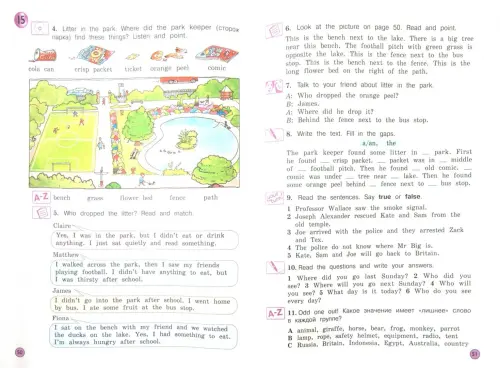 15
4. Litter in the park. Where did the park keeper (сторож парка) find these things? Listen and point.
cola can
crisp packet
ticket
orange peel
comic
A-Z
bench
grass
flower bed
fence
path
5. Who dropped the litter? Read and match.
Claire
Yes, I was in the park, but I didn't eat or drink
anything. I just sat quietly and read something.
Matthew
I walked across the park, then I saw my friends
playing football. I didn't have anything to eat, but
I was thirsty after school.
James
I didn't go into the park after school. I went home
by bus. I ate some fruit at the bus stop.
Fiona
I sat on the bench with my friend and we watched
the ducks on the lake. Yes, I had something to eat.
I'm always hungry after school.
50
6. Look at the picture on page 50. Read and point.
This is the bench next to the lake. There is a big tree
near this bench. The football pitch with green grass is
opposite the lake. This is the fence next to the bus
stop. This is the bench next to the fence. This is the
long flower bed on the right of the path.
7. Talk to your friend about litter in the park.
A: Who dropped the orange peel?
B: James.
A: Where did he drop it?
B: Behind the fence next to the bus stop.
8. Write the text. Fill in the gaps.
a/an, the
The park keeper found some litter in _ park. First
he found _ crisp packet. _ packet was in _ middle
of _ football pitch. Then he found _ old comic. _
comic was under _ tree near _ lake. Then he found
some orange peel behind _ fence next to _ bus stop.
9. Read the sentences. Say true or false.
1 Professor Wallace saw the smoke signal.
2 Joseph Alexander rescued Kate and Sam from the
old temple.
3 Joe arrived with the police and they arrested Zack
and Tex.
4 The police do not know where Mr Big is.
5 Kate, Sam and Joe will go back to Britain.
10. Read the questions and write your answers.
1 Where did you go last Sunday? 2 Who did you
see? 3 Where will you go next Sunday? 4 Who will
you see? 5 What day is it today? 6 Who do you see
every day?
A-Z
11. Odd one out! Какое значение имеет «лишнее» слово
в каждой группе?
A animal, giraffe, horse, bear, frog, monkey, parrot
B lamp, rope, safety helmet, equipment, radio, tent
C Russia, Britain, Indonesia, Egypt, Australia, country
51